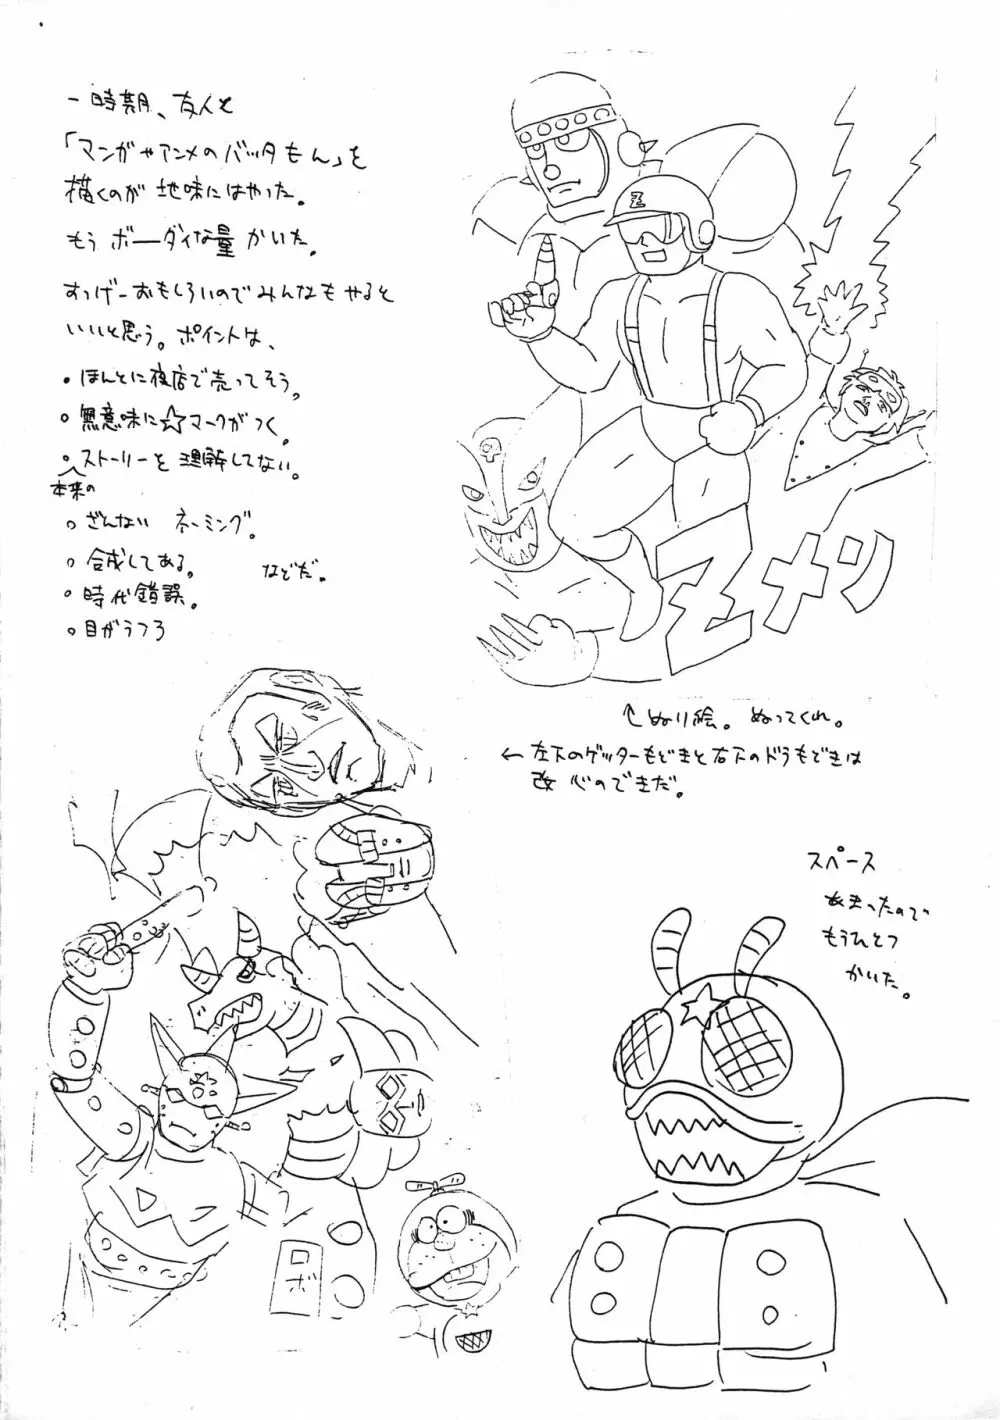 一時期、友人と
「マンガやアニメのバッタもん」を
描くのが地味にはやった。
もうボーダイな量かいた。
すっげーおもしろいのでみんなもやると
いいと思う。ポイントは、
・ほんとに夜店で売ってそう。
・無意味に☆マークがつく。
・本来のストーリーを理解してない。
・ざんないネーミング。
・合成してある。
・時代錯誤。
・目がうつろ
などだ。
Z
Zメン
↑ぬり絵。ぬってくれ。
←左下のゲッターもどきと右下のドラもどきは
改心のできだ。
スペース
あまったので
もうひとつ
かいた。
ロボ